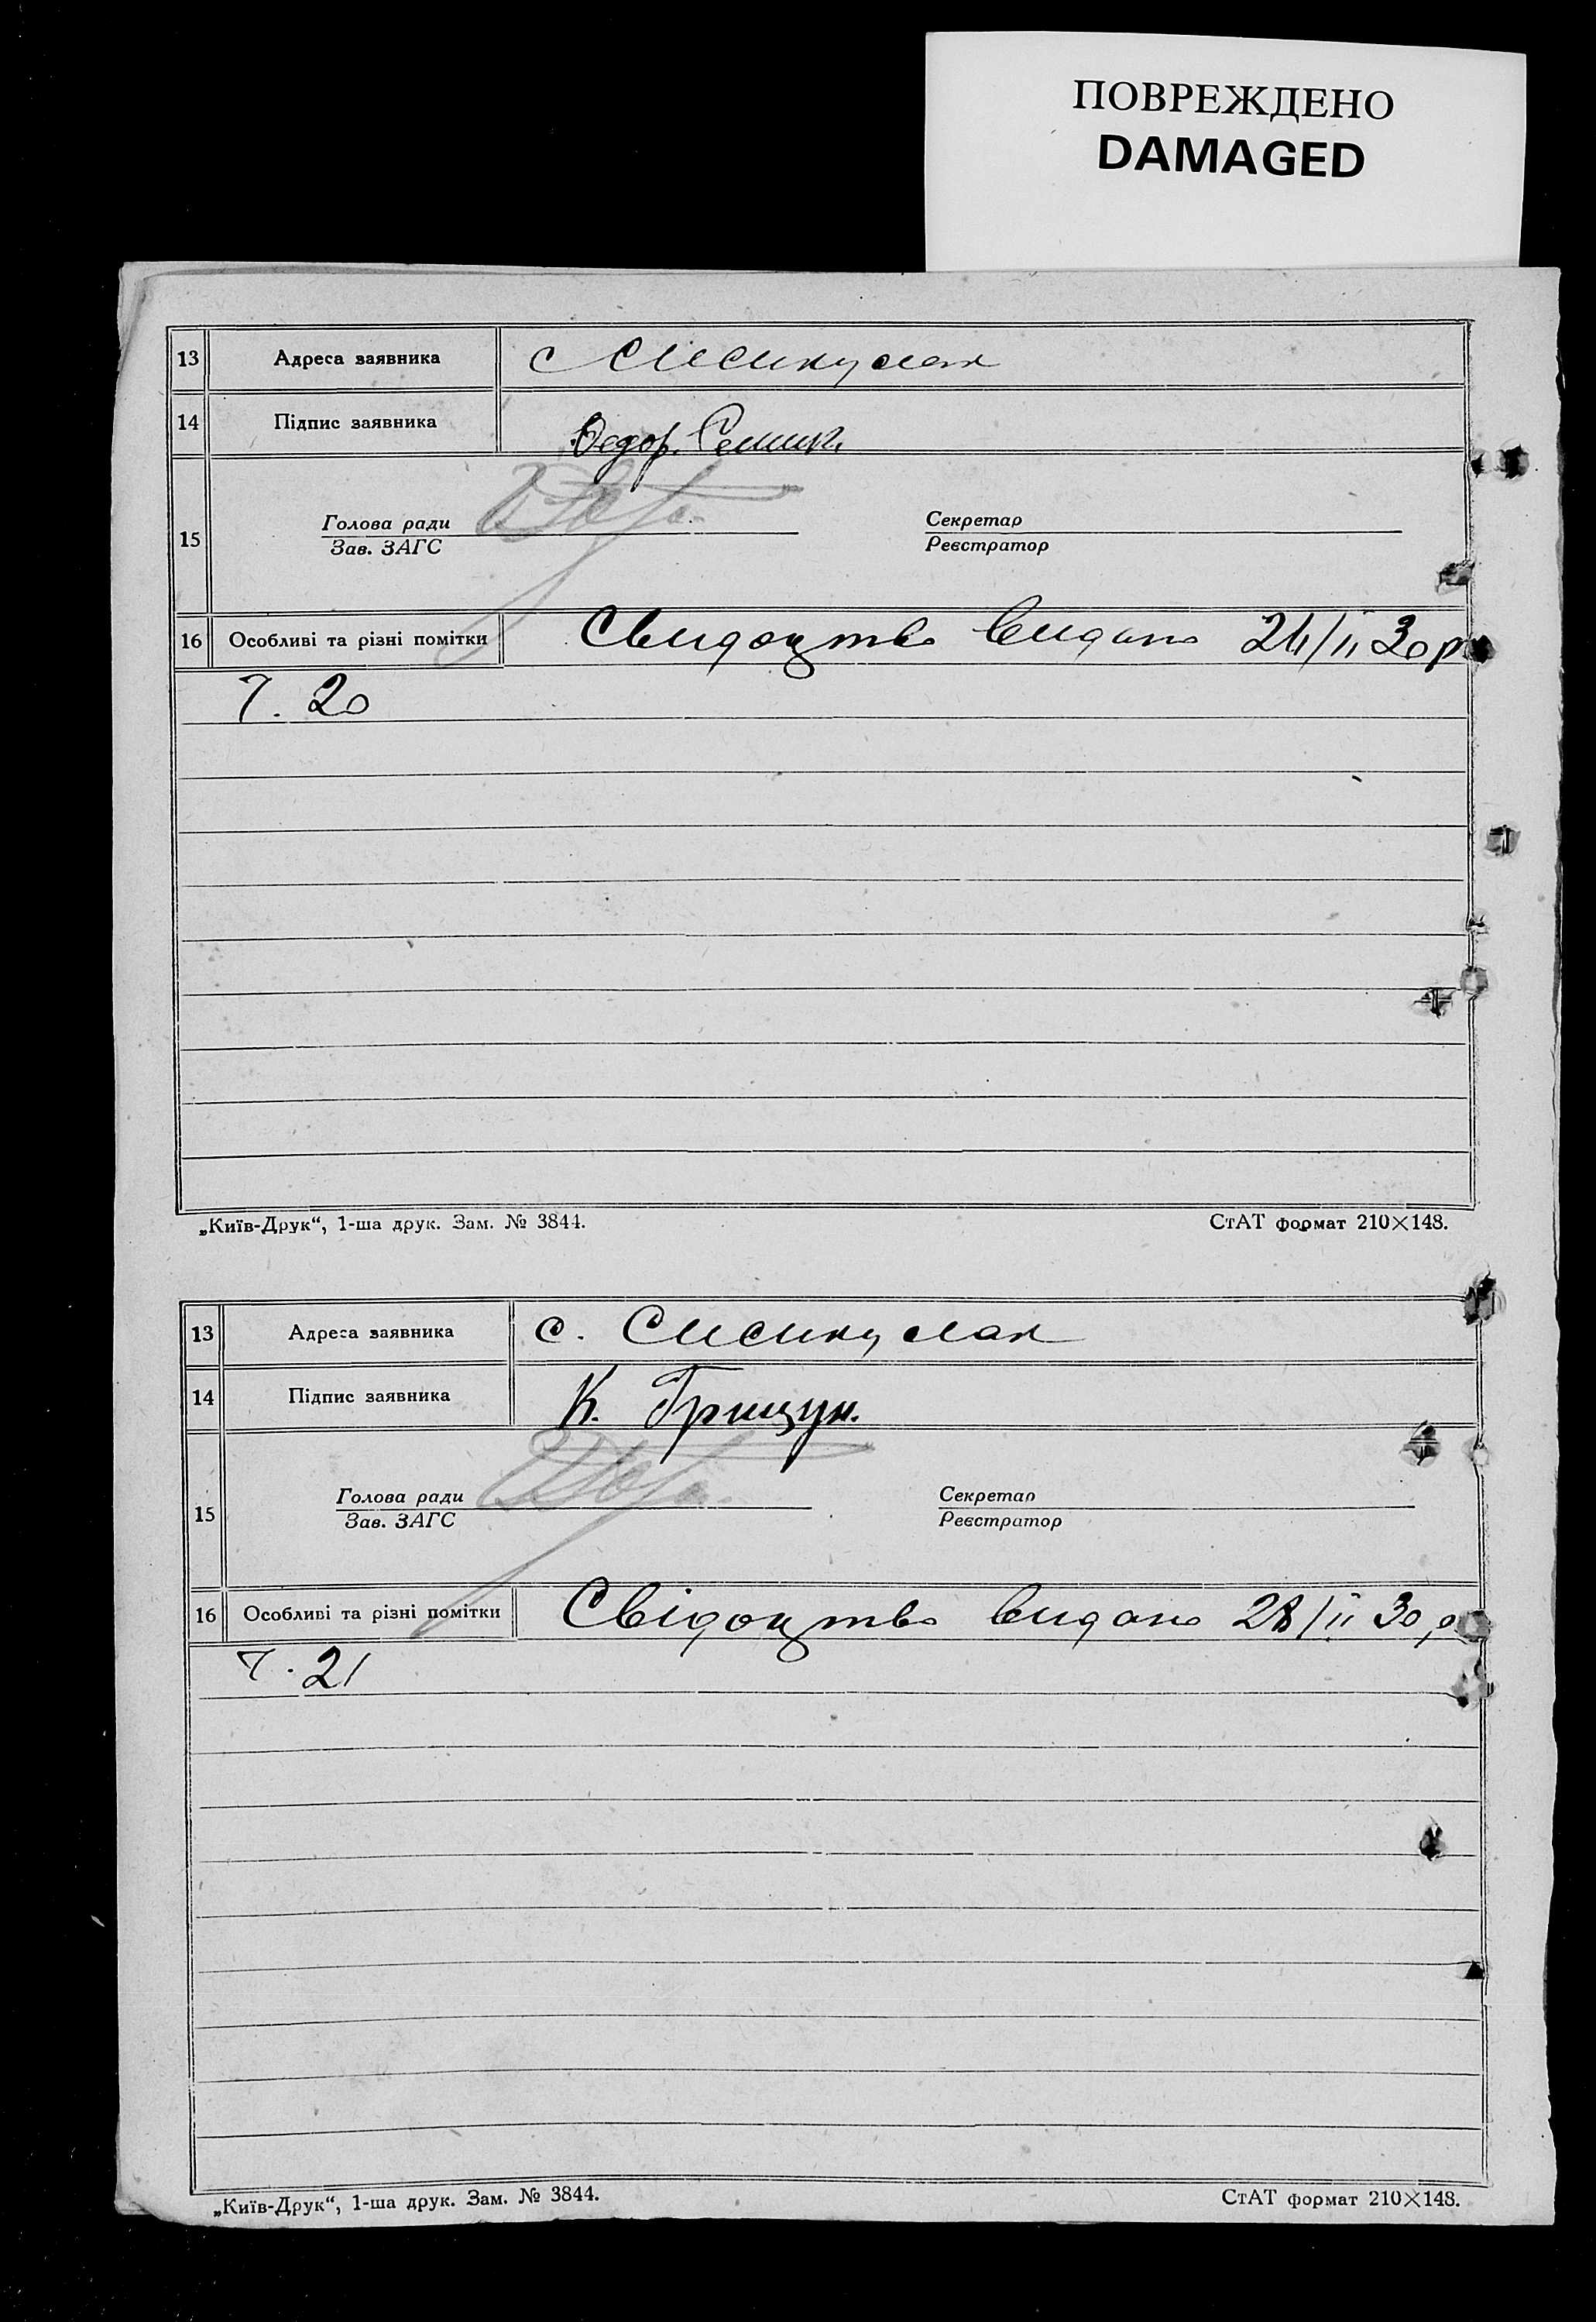 ПОВРЕЖДЕНО
DAMAGED
13 Адреса заявника с
14 Підпис заявника Федор
15 Голова ради Секретар
Зав. ЗАГС Реєстратор
16 Особливі та різні помітки Свидоцтво видано 24/II 30 р
Ч. 20
„Київ-Друк“, 1-ша друк. Зам. № 3844. СтАТ формат 210×148.
13 Адреса заявника с.
14 Підпис заявника К. Грищук.
15 Голова ради Секретар
Зав. ЗАГС Реєстратор
16 Особливі та різні помітки Свідоцтво видано 28/II 30 р
Ч. 21
„Київ-Друк“, 1-ша друк. Зам. № 3844. СтАТ формат 210×148.